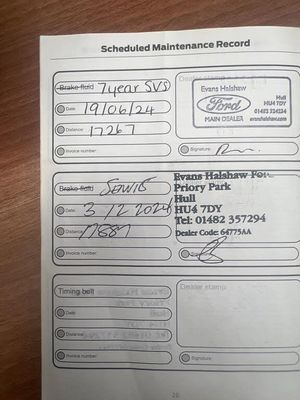 Scheduled Maintenance Record
Brake fluid 7 year SVS
Dealer stamp
Date 19/06/24
Distance 17267
Invoice number
Signature
Evans Halshaw
Ford
MAIN DEALER
Hull
HU4 7DY
evanshalshaw.com
Brake fluid
Date
Distance 17887
Invoice number
Evans Halshaw
Priory Park
Hull
HU4 7DY
Tel: 01482 357294
Dealer Code: 64775AA
Timing belt
Date
Distance
Invoice number
Dealer stamp
Signature